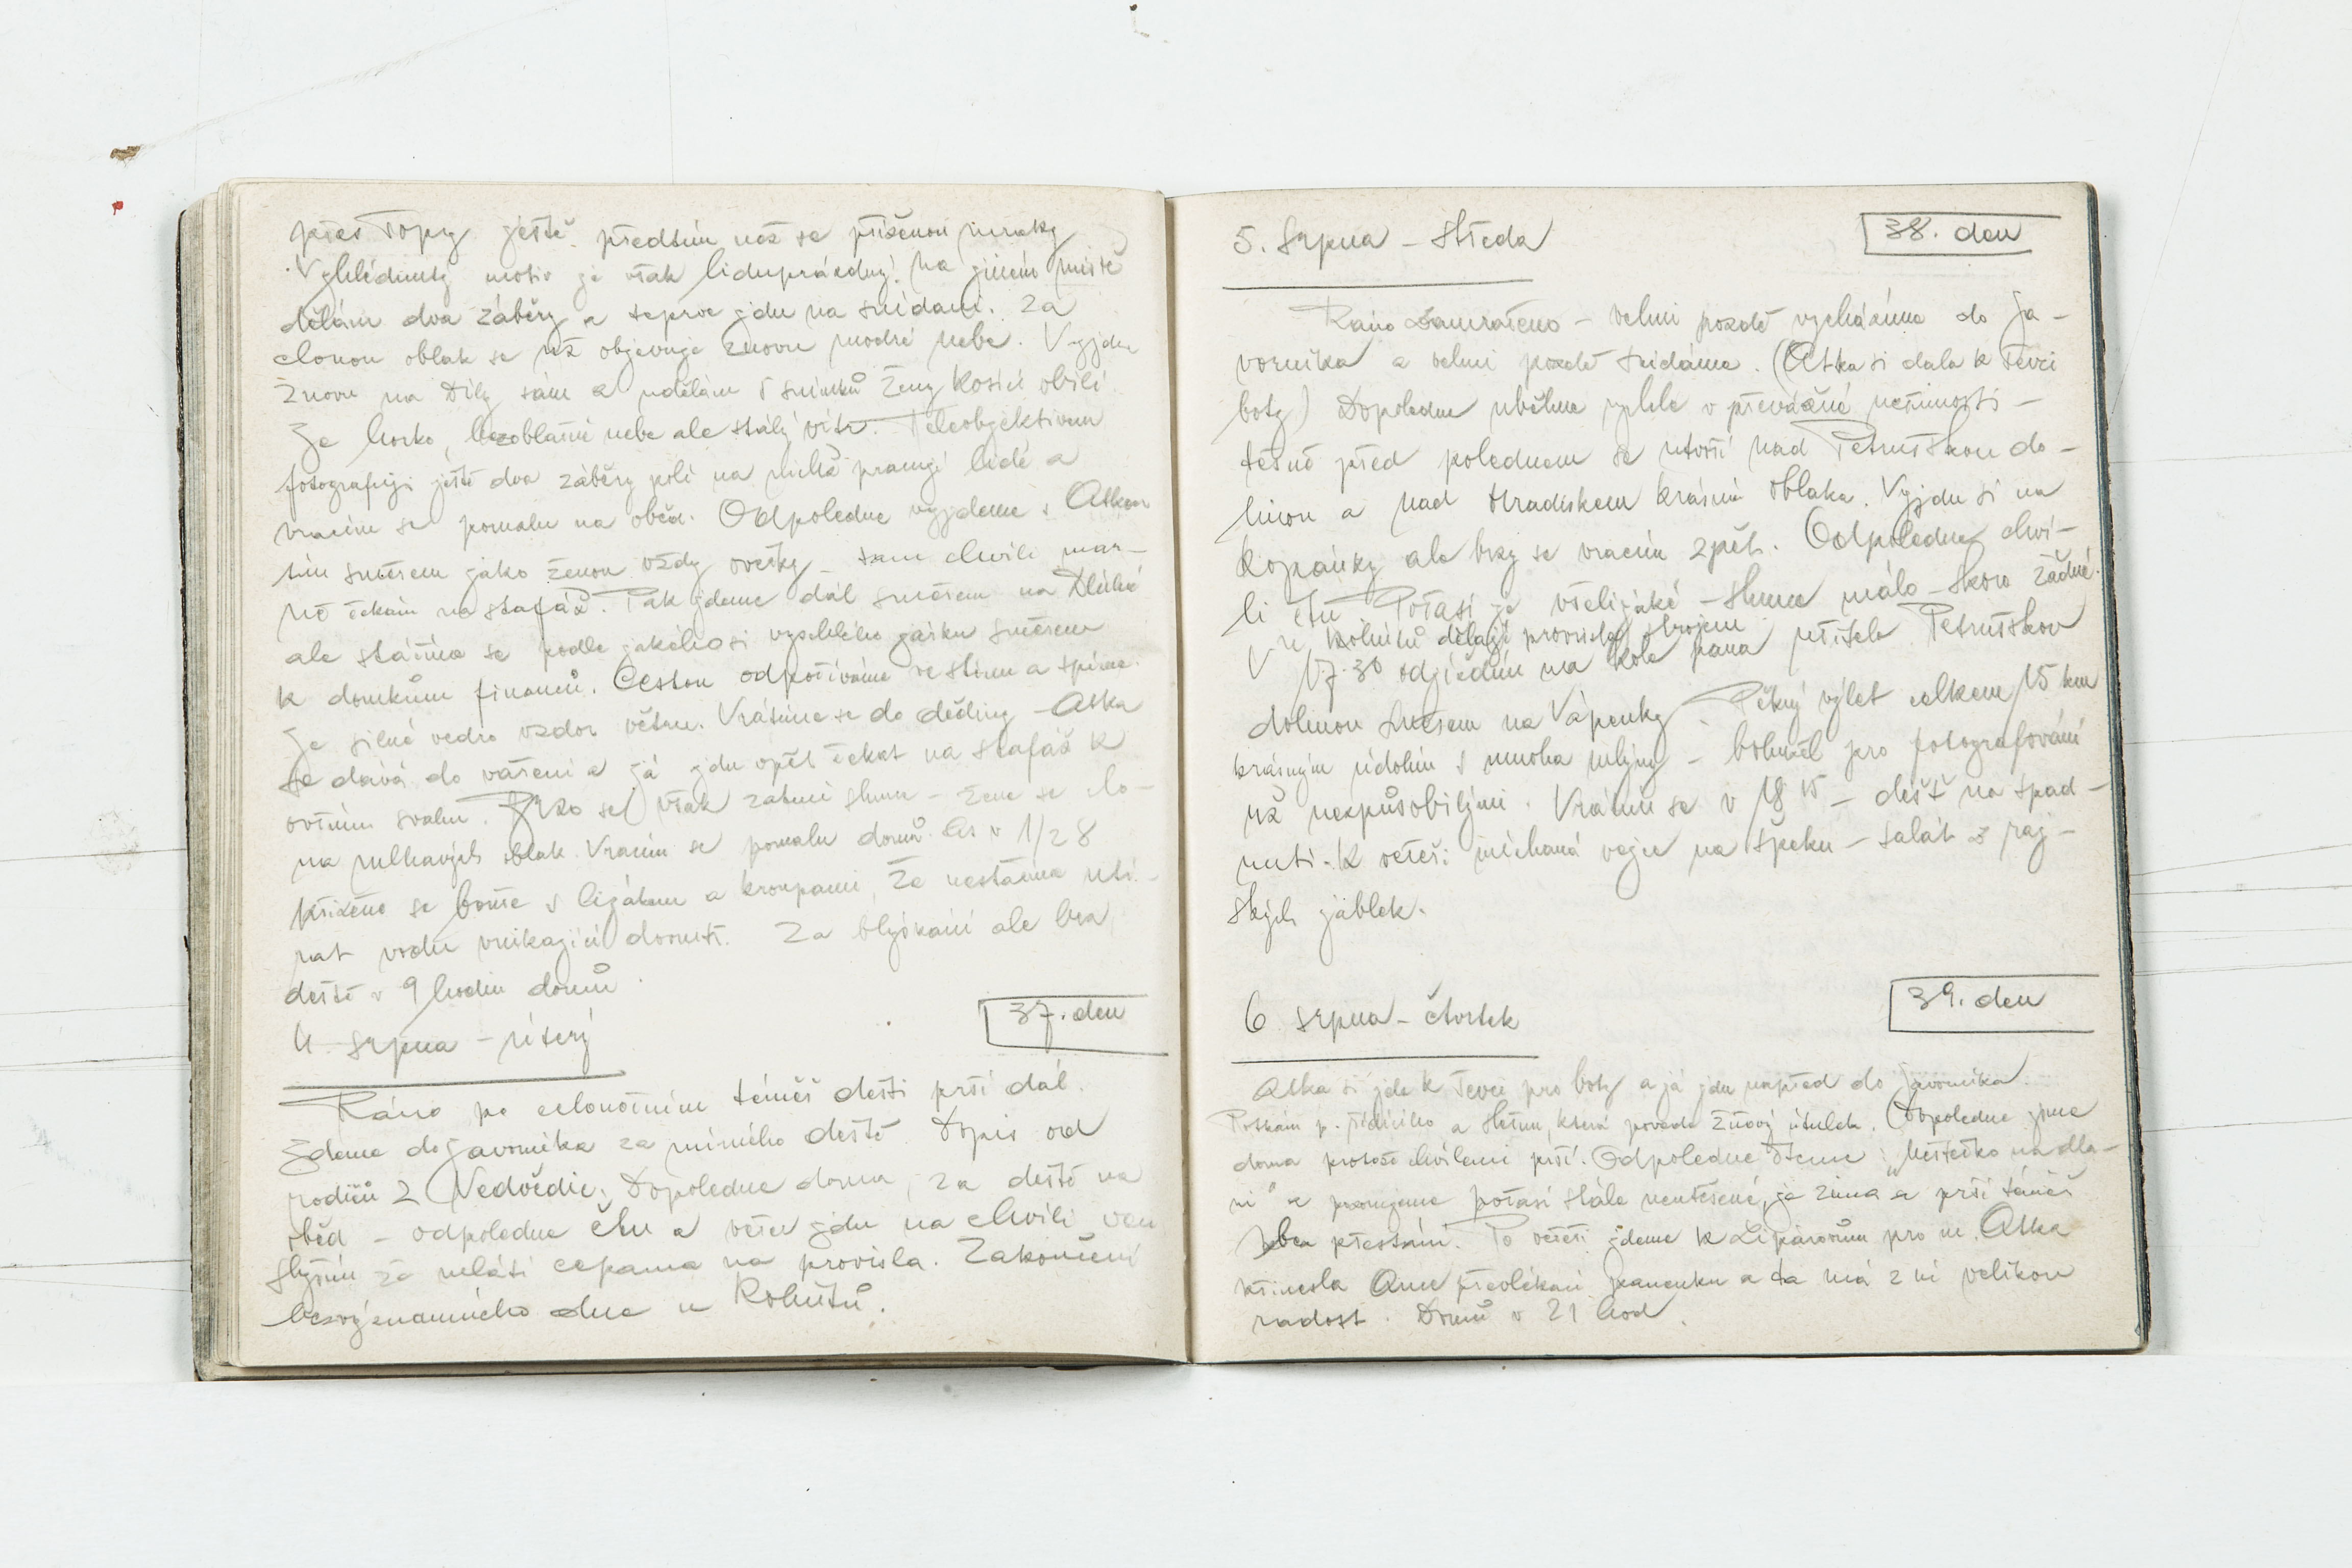 přes Topy ještě předtím než se přiženou mraky
Vyhlédnutý motiv je však liduprázdný. Na jiném místě
dělám dva záběry a teprve jdu na snídani. Za
clonou oblak se už objevuje znovu modré nebe. Vyjdu
znovu na Díly sám a udělám 5 snímků ženy kosící obilí
Je horko, bezoblačné nebe ale stálý vítr. Teleobjektivem
fotografuji ještě dva záběry polí na nichž pracují lidé a
vracím se pomalu na oběd. Odpoledne vyjdeme s Atkou
tím směrem jako ženou vždy ovečky – tam chvíli mar-
ně čekám na stafáž. Pak jdeme dál směrem na Dlúhé
ale stáčíme se podle jakéhosi vyschlého jarku směrem
k domkům financů. Cestou odpočíváme ve stínu a spíme.
Je silné vedro vzdor větru. Vrátíme se do dědiny – Atka
se dává do vaření a já jdu opět čekat na stafáž k
ovčímu svahu. Brzo se však zatmí slunce – žene se clo-
na mlhavých oblak. Vracím se pomalu domů. As v 1/2 8
přižene se bouře s lijákem a kroupami, že nestačíme utí-
rat vodu vnikající dovnitř. Za blýskání ale bez
deště v 9 hodin domů.
4. srpna – úterý
37. den
Ráno po celonočním téměř dešti prší dál.
Jdeme do Javorníka za mírného deště. Dopis od
rodičů z Nedvědic. Dopoledne doma, za deště na
oběd – odpoledne čtu a večer jdu na chvíli ven
slyším že mlátí cepama na provísla. Zakončení
bezvýznamného dne u Kohútů.
5. srpna – středa
38. den
Ráno zamračeno – velmi pozdě vycházíme do Ja-
vorníka a velmi pozdě snídáme. (Atka si dala k ševci
boty) Dopoledne uběhne rychle v převážné nečinnosti –
těsně před polednem se utvoří nad Petruškou do-
linou a nad Hradiskem krásná oblaka. Vyjdu si na
Kopánky ale brzy se vracím zpět. Odpoledne chví-
li čtu Počasí je všelijaké – slunce málo – skoro žádné.
U Kohútů dělají provísla strojem
V 17.30 odjíždím na kole pana učitele Petruškou
dolinou směrem na Vápenky. Pěkný výlet celkem 15 km
krásným údolím s mnoha mlýny – bohužel pro fotografování
už nezpůsobilými. Vrátím se v 18 15 – déšť na spad-
nutí. K večeři míchaná vejce na špeku – salát z raj-
ských jablek.
6. srpna – čtvrtek
39. den
Atka si jde k ševci pro boty a já jdu napřed do Javorníka.
Potkám p. řídícího a slečnu, která povede žňový útulek. Dopoledne jsme
doma protože chvílemi prší. Odpoledne čteme „Městečko na dla-
ni“ a pracujeme počasí stále neutěšené, je zima a prší téměř
bez přestání. Po večeři jdeme k Lipárovům pro m. Atka
přinesla Ance převlékací panenku a ta má z ní velikou
radost. Domů v 21 hod.